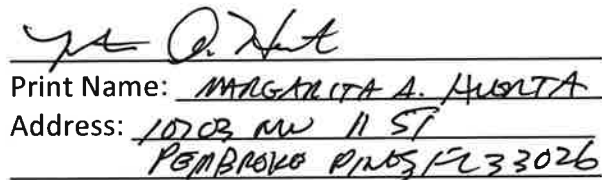 Print Name: MARGARITA A. HUERTA
Address: 10703 NW 11 ST
PEMBROKE PINES FL 33026